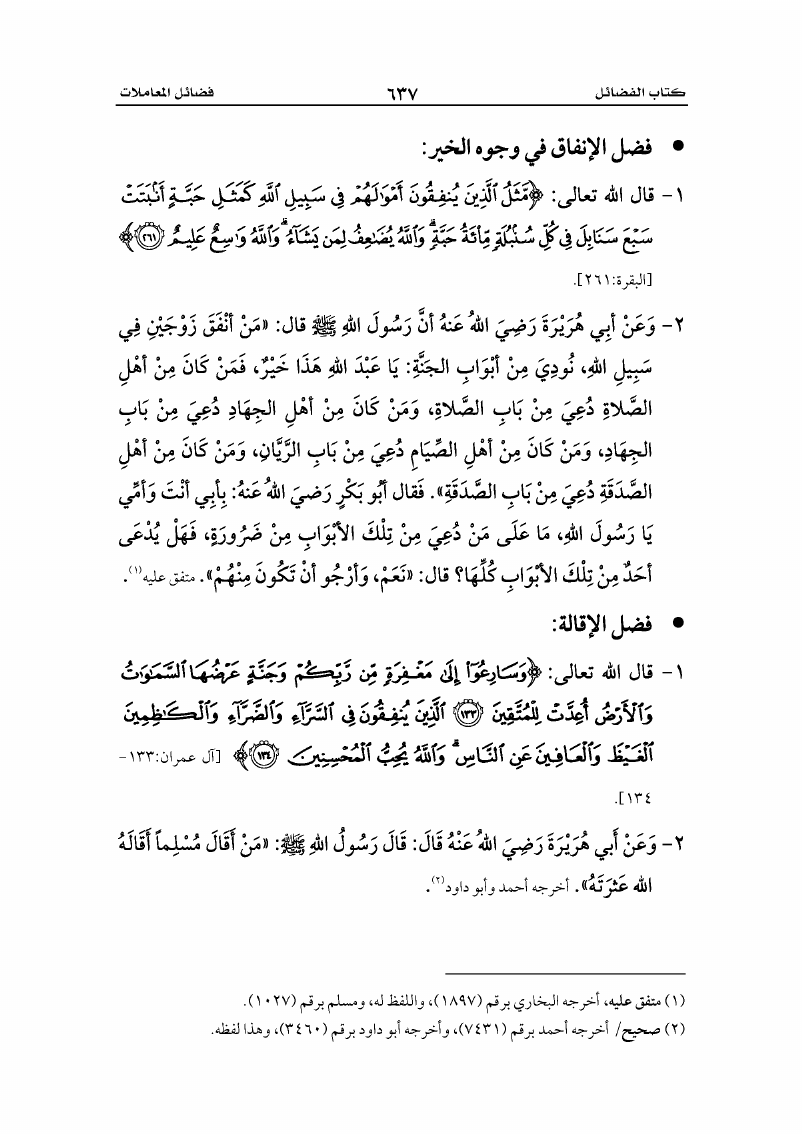 كتاب الفضائل ٦٣٧ فضائل المعاملات
● فضل الإنفاق في وجوه الخير:
١- قال الله تعالى: ﴿مَّثَلُ ٱلَّذِينَ يُنفِقُونَ أَمۡوَٰلَهُمۡ فِي سَبِيلِ ٱللَّهِ كَمَثَلِ حَبَّةٍ أَنۢبَتَتۡ
سَبۡعَ سَنَابِلَ فِي كُلِّ سُنۢبُلَةٖ مِّاْئَةُ حَبَّةٖۗ وَٱللَّهُ يُضَٰعِفُ لِمَن يَشَآءُۗ وَٱللَّهُ وَٰسِعٌ عَلِيمٌ ۝٢٦١﴾
[البقرة:٢٦١].
٢- وَعَنْ أبِي هُرَيْرَةَ رَضِيَ اللهُ عَنهُ أنَّ رَسُولَ اللهِ ﷺ قال: «مَنْ أنْفَقَ زَوْجَيْنِ فِي
سَبِيلِ اللهِ، نُودِيَ مِنْ أبْوَابِ الجَنَّةِ: يَا عَبْدَ اللهِ هَذَا خَيْرٌ، فَمَنْ كَانَ مِنْ أهْلِ
الصَّلاةِ دُعِيَ مِنْ بَابِ الصَّلاةِ، وَمَنْ كَانَ مِنْ أهْلِ الجِهَادِ دُعِيَ مِنْ بَابِ
الجِهَادِ، وَمَنْ كَانَ مِنْ أهْلِ الصِّيَامِ دُعِيَ مِنْ بَابِ الرَّيَّانِ، وَمَنْ كَانَ مِنْ أهْلِ
الصَّدَقَةِ دُعِيَ مِنْ بَابِ الصَّدَقَةِ». فَقال أبُو بَكْرٍ رَضِيَ اللهُ عَنهُ: بِأبِي أنْتَ وَأمِّي
يَا رَسُولَ اللهِ، مَا عَلَى مَنْ دُعِيَ مِنْ تِلْكَ الأبْوَابِ مِنْ ضَرُورَةٍ، فَهَلْ يُدْعَى
أحَدٌ مِنْ تِلْكَ الأبْوَابِ كُلِّهَا؟ قال: «نَعَمْ، وَأرْجُو أنْ تَكُونَ مِنْهُمْ». متفق عليه(١).
● فضل الإقالة:
١- قال الله تعالى: ﴿وَسَارِعُوٓاْ إِلَىٰ مَغۡفِرَةٖ مِّن رَّبِّكُمۡ وَجَنَّةٍ عَرۡضُهَا ٱلسَّمَٰوَٰتُ
وَٱلۡأَرۡضُ أُعِدَّتۡ لِلۡمُتَّقِينَ ۝١٣٣ ٱلَّذِينَ يُنفِقُونَ فِي ٱلسَّرَّآءِ وَٱلضَّرَّآءِ وَٱلۡكَٰظِمِينَ
ٱلۡغَيۡظَ وَٱلۡعَافِينَ عَنِ ٱلنَّاسِۗ وَٱللَّهُ يُحِبُّ ٱلۡمُحۡسِنِينَ ۝١٣٤﴾ [آل عمران:١٣٣-
١٣٤].
٢- وَعَنْ أَبي هُرَيْرَةَ رَضِيَ اللهُ عَنْهُ قَالَ: قَالَ رَسُولُ اللهِ ﷺ: «مَنْ أَقَالَ مُسْلِماً أَقَالَهُ
الله عَثرَتَهُ». أخرجه أحمد وأبو داود(٢).
(١) متفق عليه، أخرجه البخاري برقم (١٨٩٧)، واللفظ له، ومسلم برقم (١٠٢٧).
(٢) صحيح/ أخرجه أحمد برقم (٧٤٣١)، وأخرجه أبو داود برقم (٣٤٦٠)، وهذا لفظه.